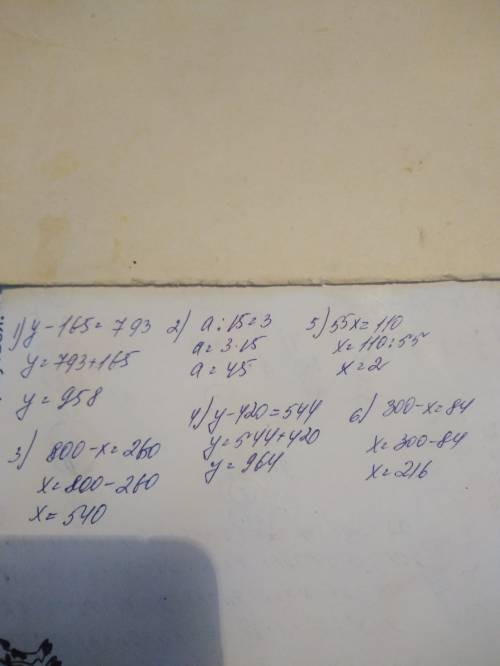 1) y-165=793
y=793+165
y=958
2) a:15=3
a=3·15
a=45
3) 800-x=260
x=800-260
x=540
4) y-420=544
y=544+420
y=964
5) 55x=110
x=110:55
x=2
6) 300-x=84
x=300-84
x=216